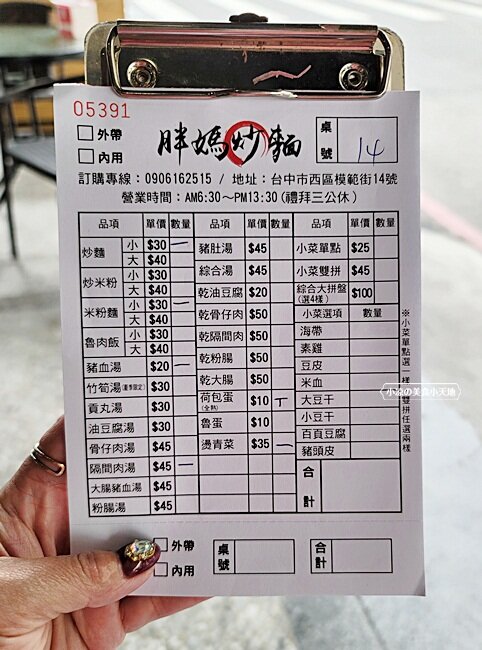 05391
外帶
內用
胖媽炒麵
桌號 14
訂購專線：0906162515 / 地址：台中市西區模範街14號
營業時間：AM6:30～PM13:30(禮拜三公休)
品項 單價 數量
炒麵 小 $30 一
大 $40
炒米粉 小 $30
大 $40
米粉麵 小 $30 一
大 $40
魯肉飯 小 $30
大 $40
豬血湯 $20 一
竹筍湯(夏季限定) $30
貢丸湯 $30
油豆腐湯 $30
骨仔肉湯 $45
隔間肉湯 $45 一
大腸豬血湯 $45
粉腸湯 $45
品項 單價 數量
豬肚湯 $45
綜合湯 $45
乾油豆腐 $20
乾骨仔肉 $50
乾隔間肉 $50
乾粉腸 $50
乾大腸 $50
荷包蛋(全熟) $10 丅
魯蛋 $10
燙青菜 $35 一
品項 單價 數量
小菜單點 $25
小菜雙拼 $45
綜合大拼盤(選4樣) $100
小菜選項 數量
海帶
素雞
豆皮
米血
大豆干
小豆干
百頁豆腐
豬頭皮
合計
※小菜單點選一樣 雙拼任選兩樣
小涼の美食小天地
外帶
內用
桌號
合計